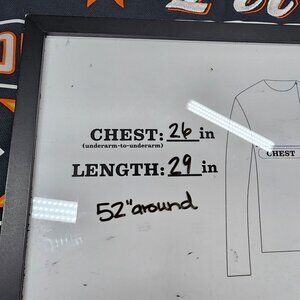 CHEST: 26 in
(underarm-to-underarm)
CHEST
LENGTH: 29 in
52" around